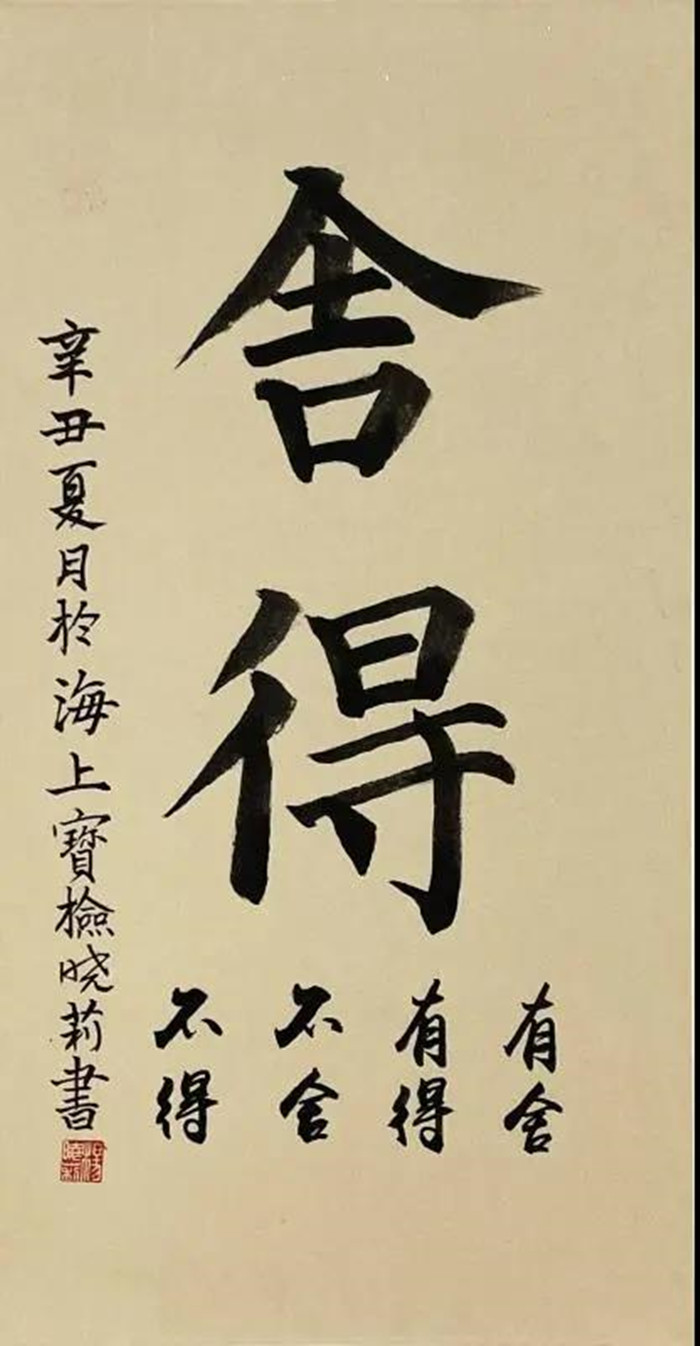 舍得
有舍
有得
不舍
不得
辛丑夏月於海上寶檢晓莉書